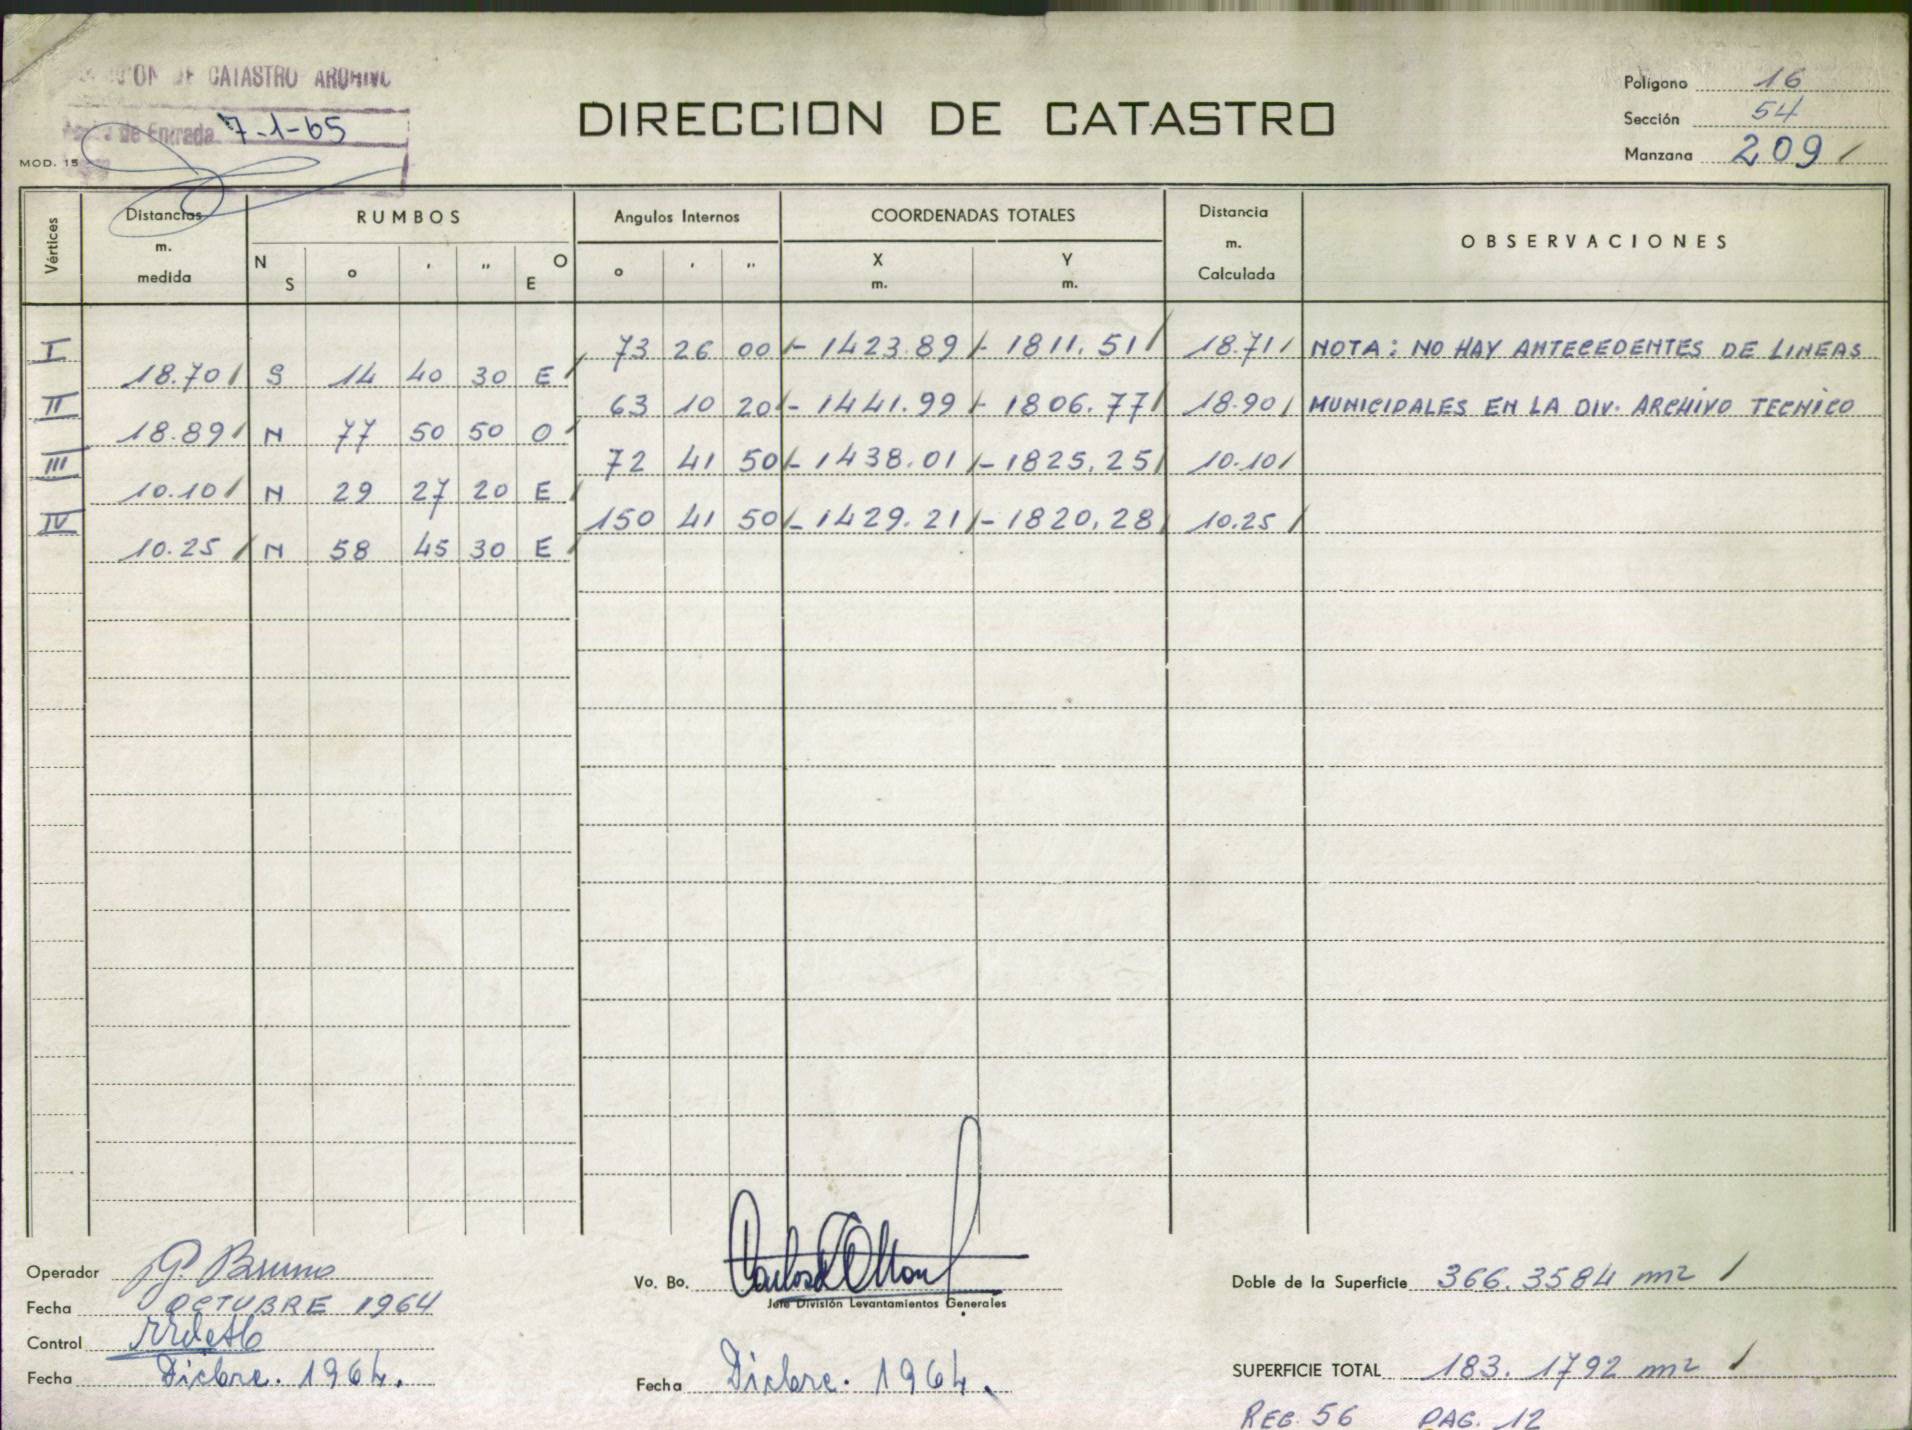 DE CATASTRO ARCHIVO
de Entrada 7-1-65
MOD. 15
DIRECCION DE CATASTRO
Polígono 16
Sección 54
Manzana 209
Vértices
Distancias m. medida
RUMBOS
N S ° ' '' O E
Angulos Internos
° ' ''
COORDENADAS TOTALES
X m. Y m.
Distancia m. Calculada
OBSERVACIONES
I 73 26 00 - 1423.89 - 1811.51 18.71 NOTA: NO HAY ANTECEDENTES DE LINEAS
18.70 S 14 40 30 E
II 63 10 20 - 1441.99 - 1806.77 18.90 MUNICIPALES EN LA DIV. ARCHIVO TECNICO
18.89 N 77 50 50 O
III 72 41 50 - 1438.01 - 1825.25 10.10
10.10 N 29 27 20 E
IV 150 41 50 - 1429.21 - 1820,28 10.25
10.25 N 58 45 30 E
Operador G. Bruno
Fecha OCTUBRE 1964
Control
Fecha Dicbre. 1964.
Vo. Bo.
Jefe División Levantamientos Generales
Fecha Dicbre. 1964.
Doble de la Superficie 366.3584 m2
SUPERFICIE TOTAL 183.1792 m2
REG. 56 PAG. 12